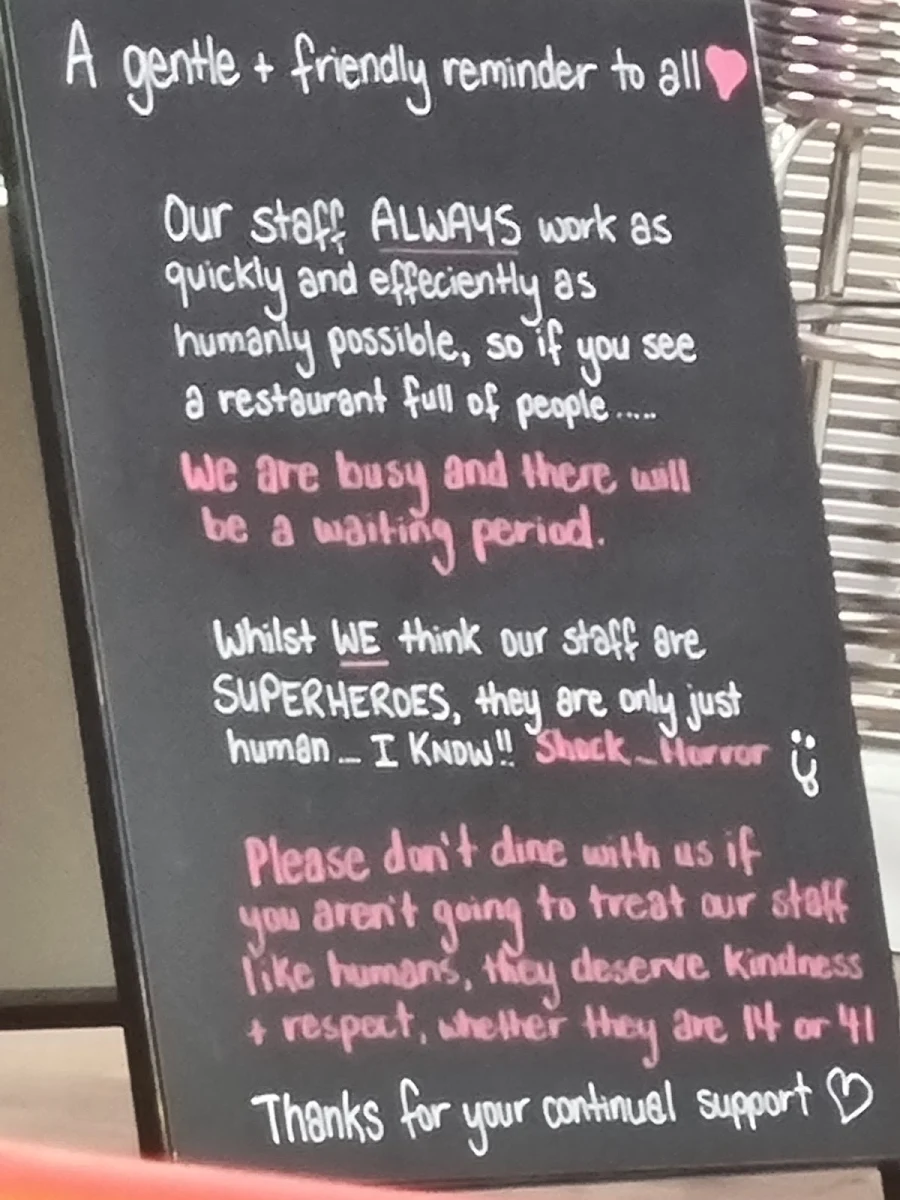 A gentle + friendly reminder to all
Our staff ALWAYS work as
quickly and effeciently as
humanly possible, so if you see
a restaurant full of people.....
We are busy and there will
be a waiting period.
Whilst WE think our staff are
SUPERHEROES, they are only just
human... I KNOW!! Shock... Horror
Please don't dine with us if
you aren't going to treat our staff
like humans, they deserve kindness
+ respect, whether they are 14 or 41
Thanks for your continual support ♡